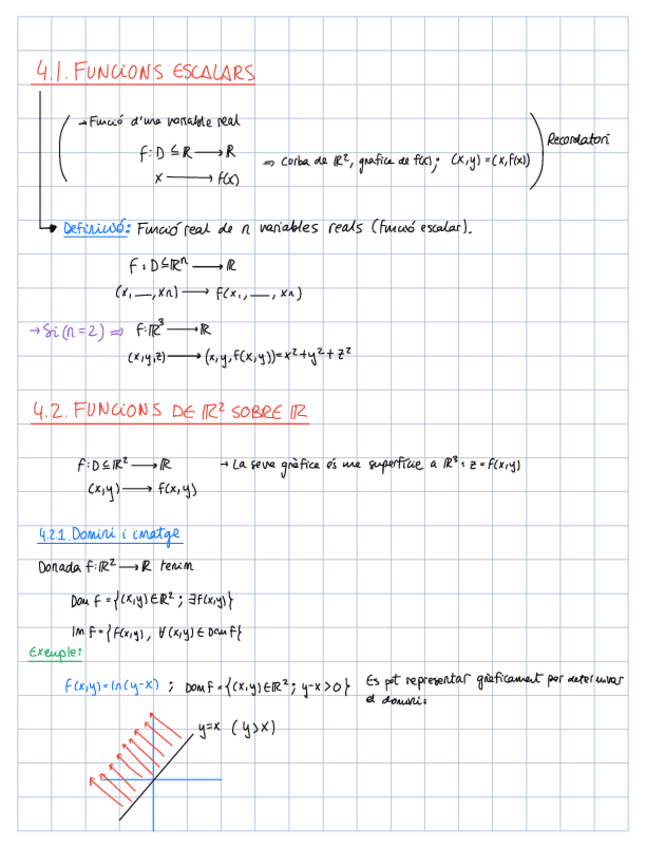 4.1. FUNCIONS ESCALARS
→ Funció d'una variable real
f: D ⊆ R → R
x → f(x)
⇒ Corba de R², grafica de f(x); (x,y) = (x, f(x))
Recordatori
Definició: Funció real de n variables reals (funció escalar).
f: D ⊆ Rⁿ → R
(x, —, xn) → f(x,, —, xn)
→ Si (n=2) ⇒ f: R³ → R
(x,y,z) → (x, y, f(x,y)) = x² + y² + z²
4.2. FUNCIONS DE R² SOBRE R
f: D ⊆ R² → R → La seva gràfica és una superfície a R³: z = f(x,y)
(x,y) → f(x,y)
4.2.1. Domini i imatge
Donada f: R² → R tenim
Dom f = {(x,y) ∈ R² ; ∃ f(x,y)}
Im f = {f(x,y), ∀ (x,y) ∈ Dom f}
Exemple:
f(x,y) = ln(y-x) ; Dom f = {(x,y) ∈ R² ; y-x > 0} Es pot representar gràficament per determinar
el domini:
y=x (y>x)